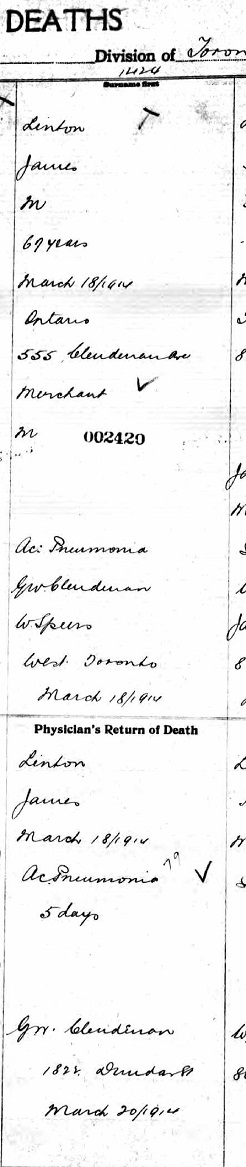 DEATHS
Division of Toron
1424
Surname first
Linton
James
M
69 years
March 18/1914
Ontario
555 Clendenan Ave
Merchant
M 002420
Ac: Pneumonia
GW Clendenan
W Speers
West Toronto
March 18/1914
Physician's Return of Death
Linton
James
March 18/1914
Ac Pneumonia 79
5 days
GW. Clendenan
182 Dundas St
March 20/1914